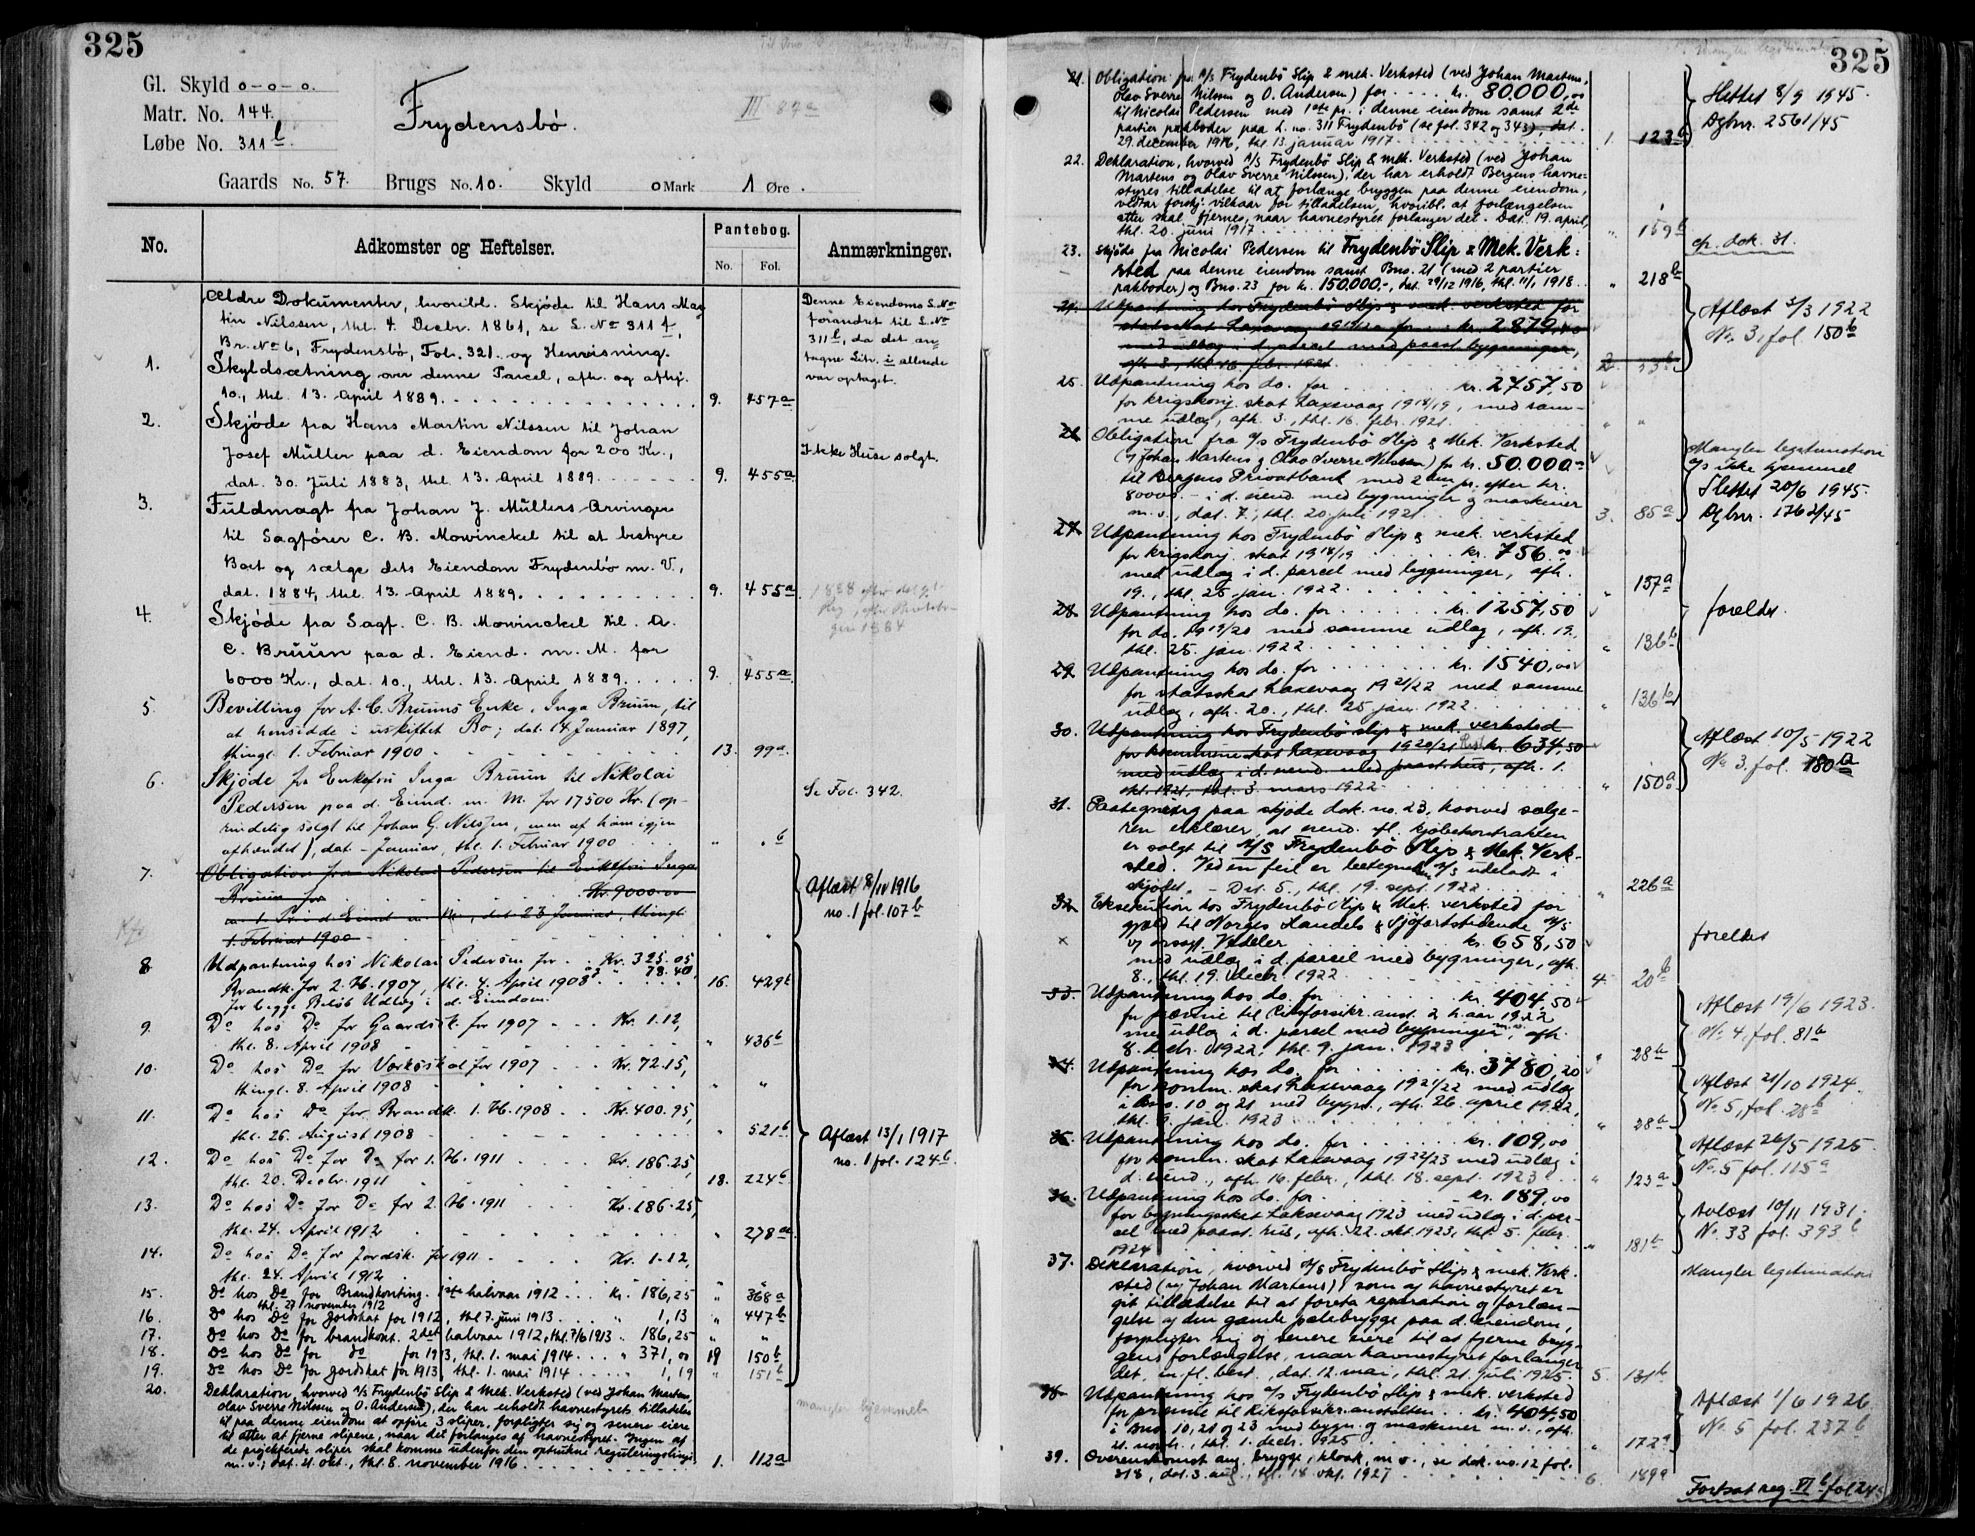 325
Gl. Skyld o-o-o.
Matr. No. 144.
Løbe No. 311 b
Frydensbö.
III 87a
Gaards No. 57. Brugs No. 10. Skyld o Mark 1 Øre.
No. Adkomster og Heftelser. Pantebog. No. Fol. Anmærkninger.
Ældre Dokumenter, hvoribl. Skjöde til Hans Mar
tin Nilssen, thl. 4. Decbr. 1861, se L. No 311 f,
Br. No 6, Frydensbö, Fol. 321. og Henvisning.
Denne Eiendoms L. No
forandret til L. No
311 b, da det an
tagne Litr. i allerede
var optaget.
1. Skyldsætning over denne Parcel, afh. og afhj.
10., thl. 13. April 1889. 9. 457a
2. Skjöde fra Hans Martin Nilssen til Johan
Josef Müller paa d. Eiendom for 200 Kr.,
dat. 30. Juli 1883, thl. 13. April 1889. 9. 455a
Ikke Huse solgt.
3. Fuldmagt fra Johan J. Müllers Arvinger
til Sagförer C. B. Mowinckel til at bestyre
Boet og sælge dets Eiendom Frydenbö m. V.,
dat. 1884, thl. 13. April 1889. 9. 455a
4. Skjöde fra Sagf. C. B. Mowinckel til A.
C. Bruun paa d. Eiend. m. M. for
6000 Kr., dat. 10., thl. 13. April 1889. 9. 455a
5. Bevilling for A. C. Bruuns Enke, Inga Bruun, til
at hensidde i uskiftet Bo; dat. 14 Januar 1897,
thingl. 1. Februar 1900 13. 99a
6. Skjöde fra Enkefru Inga Bruun til Nikolai
Pedersen paa d. Eiend. m. M. for 17500 Kr. (op-
rindelig solgt til Johan G. Nilssen, men af ham igjen
afhændet), dat. - Januar, thl. 1. Februar 1900 " " b
Se Fol. 342.
7. Obligation fra Nikolai Pedersen til Enkefru Inga
Bruun for Kr. 9000.00
m. 1. Pr. i d. Eiend m. M., dat 23 Januar, thingl.
1. Februar 1900 " "
Aflæst 8/11 1916
no. 1 fol. 107 b
8 Udpantning hos Nikolai Pedersen for Kr. 325.05
Brandk. for 2. H. 1907, thl. 4. April 1908 " 78.40 16. 429b
for begge Beløb Udlæg i d. Eiendom.
9. Do hos Do for Gaardsk. for 1907 Kr. 1.12,
thl. 8. April 1908 " 436b
10. Do hos Do for Værksskat for 1907 Kr. 72.15,
thingl. 8. April 1908 " "
11. Do hos Do for Brandk. 1. H. 1908 Kr. 400.95,
thl. 26. August 1908 " 521b
Aflæst 13/1 1917
no. 1 fol. 124 b.
12. Do hos Do for Do for 1. H. 1911 Kr. 186.25,
thl. 20. Decbr. 1911 18. 224b
13. Do hos Do for Do for 2. H. 1911 Kr. 186.25,
thl. 24. April 1912 " 278a
14. Do hos Do for Jordsk. for 1911 Kr. 1.12,
thl. 24. April 1912 " "
15. Do hos Do for Brandkonting. 1ste halvaar 1912 kr. 186,25 " 368a
thl. 27 november 1912
16. Do hos Do for Jordskat for 1912, thl 7. juni 1913 " 1,13 " 447b
17. Do hos Do for brandkont. 2det halvaar 1912, thl. 7/6 1913 " 186,25 " "
18. Do hos Do for do for 1913, thl. 1. mai 1914 " 371,00 19 150b
19. Do hos Do for Jordskat for 1913, thl. 1. mai 1914 1,19 " 151b
20. Deklaration, hvorved A/S Frydenbö Slip & Mek. Verksted (ved Johan Martens,
Olav Sverre Nilssen og O. Andersen), der har erholdt havnestyrets tilladelse
til paa denne eiendom at opføre 3 sliper, forpligter sig og senere eiere
til atter at fjerne slipene, naar det forlanges af havnestyret. Ingen af
de projekterede sliper skal komme udenfor den optrukne reguleringslinje
m.v.; dat. 21. okt., thl. 8. november 1916. 1. 112a
mangler hjemmel
325
21. Obligation fra A/S Frydenbö Slip & mek. Verksted (ved Johan Martens,
Olav Sverre Nilssen og O. Andersen) for kr. 80000,00
til Nicolai Pedersen med 1ste pr. i denne eiendom samt 2de
partier pakboder paa L. no. 311 Frydenbö (se fol. 342 og 343), dat.
29. december 1916, thl. 13. januar 1917. 1. 123b
Slettet 8/9 1945.
Dgbnr. 2561/45
22. Deklaration, hvorved A/S Frydenbö Slip & mek. Verksted (ved Johan
Martens og Olav Sverre Nilssen), der har erholdt Bergens havne-
styres tilladelse til at forlænge bryggen paa denne eiendom,
vedtar forskj. vilkaar for tilladelsen, hvoribl. at forlængelsen
atter skal fjernes, naar havnestyret forlanger det. Dat. 19. april,
thl. 20. juni 1917 " 159b
23. Skjøde fra Nicolai Pedersen til Frydenbö Slip & Mek. Verk-
sted paa denne eiendom samt Bno. 21 (med 2 partier
pakboder) og Bno. 23 for kr. 150.000.-, dat. 29/12 1916, thl. 11/1 1918. " 218b
cfr. dok. 31.
24. Udpantning hos Frydenbö Slip & mek. verksted for
statsskat Laxevaag 1919/20 for kr. 2879,40
med udlæg i d. parcel med paast. bygninger,
afh. 3., thl 16 febr. 1921 2 53b
Aflæst 3/3 1922
No. 3, fol. 150b
25. Udpantning hos do. for kr. 2757,50
for krigskonj. skat Laxevaag 1918/19, med sam-
me udlæg, afh. 3., thl. 16. febr. 1921. " "
26. Obligation fra A/S Frydenbö Slip & Mek. Verksted
(v/ Johan Martens & Olav Sverre Nilssen) for kr. 50.000.-
til Bergens Privatbank med 2den pr. efter kr.
80000.- i d. eiend. med bygninger & maskiner
m.v., dat. 7., thl. 20. juli 1921. 3. 85a
Mangler legitimation
A/S ikke hjemmel
Slettet 20/6 1945.
Dgbnr. 1762/45
27. Udpantning hos Frydenbö Slip & mek. verksted
for krigskonj. skat 1918/19 kr. 756.00
med udlæg i d. parcel med bygninger, afh.
19., thl. 25. jan. 1922. " 137a
28. Udpantning hos do. for kr. 1257,50
for do. 1919/20 med samme udlæg, afh. 19.,
thl. 25. jan. 1922. " 136b
foreldet.
29. Udpantning hos do. for kr. 1540,00
for statsskat Laxevaag 1921/22 med samme
udlæg, afh. 20., thl. 25. jan. 1922. " 136b
30. Udpantning hos Frydenbö slip & mek. verksted
for kommuneskat Laxevaag 1920/21 Rest kr. 634,50
med udlæg i d. eiend. med paast. hus, afh. 1.
okt. 1921, thl. 3. mars 1922. " 150a
Aflæst 10/5 1922
No 3. fol. 180a
31. Paategning paa skjøde dok. no. 23, hvorved sælge-
ren erklærer, at eiend. ifl. kjøbekontrakten
er solgt til A/S Frydenbö Slip & Mek. Verk-
sted. Ved en feil er betegnelsen A/S udeladt i
skjødet. - Dat. 5., thl. 19. sept. 1922 " 226a
32. Eksekution hos Frydenbö Slip & Mek. verksted for
gjæld til Norges Handels & Sjöfartstidende A/S
kr. 658,50
med udlæg i d. parcel med bygninger, afh.
8., thl. 19. decbr. 1922 4. 20b
foreldet
33. Udpantning hos do. for kr. 404,50
for præmie til Riksforsikr. anst. 2 h. aar 1922
med udlæg i d. parcel med bygninger m.v., afh.
8. decbr. 1922, thl. 9. jan. 1923 " 28b
Aflæst 19/6 1923.
No 4, fol. 81b
34. Udpantning hos do. for kr. 3780,20
for komm. skat Laxevaag 1921/22 med udlæg
i Bno. 10 og 21 med bygn., afh. 26. april 1922,
thl. 9. jan. 1923 " 28b
Aflæst 21/10 1924.
No 5, fol. 28b
35. Udpantning hos do. for kr. 109,00
for komm. skat Laxevaag 1922/23 med udlæg i
d. eiend., afh. 16. febr., thl. 18. sept. 1923 " 123a
Aflæst 26/5 1925.
No. 5 fol. 115a
36. Udpantning hos do. for kr. 189,00
for bygningsskat Laksevaag 1923 med udlæg i d. par-
cel med paast. hus, afh. 22. okt. 1923, thl. 5. febr.
1924 " 181b
Avlæst 10/11 1931.
No. 33 fol. 393 b
37. Deklaration, hvorved A/S Frydenbö Slip & mek. Verk-
sted (v/ Johan Martens) som av havnestyret er
git tilladelse til at foreta reparation og forlæn-
gelse av den gamle pælebrygge paa d. eiendom,
forpligter sig og senere eiere til at fjerne bryg-
gens forlængelse, naar havnestyret forlanger
det, m. fl. best., dat. 12. mai, thl. 21. juli 1925. 5. 131b
Mangler legitimation
38. Udpantning hos A/S Frydenbö Slip & mek. verksted
for præmie til Riksforsikr. anstalten kr. 404,50
i Bno. 10, 21 og 23 med bygn. og maskiner m.v., afh.
21. novbr., thl. 1. decbr. 1925 " 172a
Aflæst 1/6 1926
No. 5 fol. 237 b
39. Overenskomst ang. brygge, kloak, m.v., se dok. no. 12 fol.
318, dat. 3. aug., thl. 18 okt. 1927 6. 149a
Fortsat reg. VI b fol 245